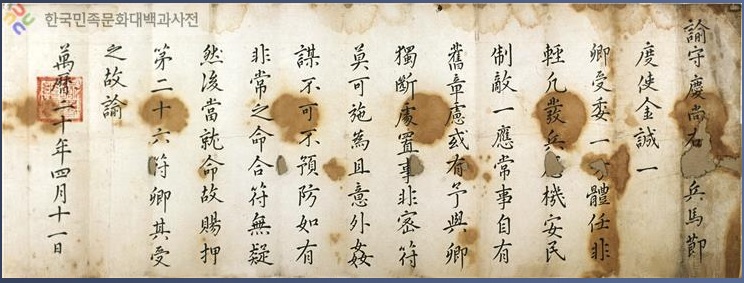 한국민족문화대백과사전
諭守慶尚右兵馬節
度使金誠一
卿受委一方體任非
輕凡發兵應機安民
制敵一應常事自有
舊章慮或有予與卿
獨斷處置事非密符
莫可施爲且意外姦
謀不可不預防如有
非常之命合符無疑
然後當就命故賜押
第二十六符卿其受
之故諭
萬曆二十年四月十一日